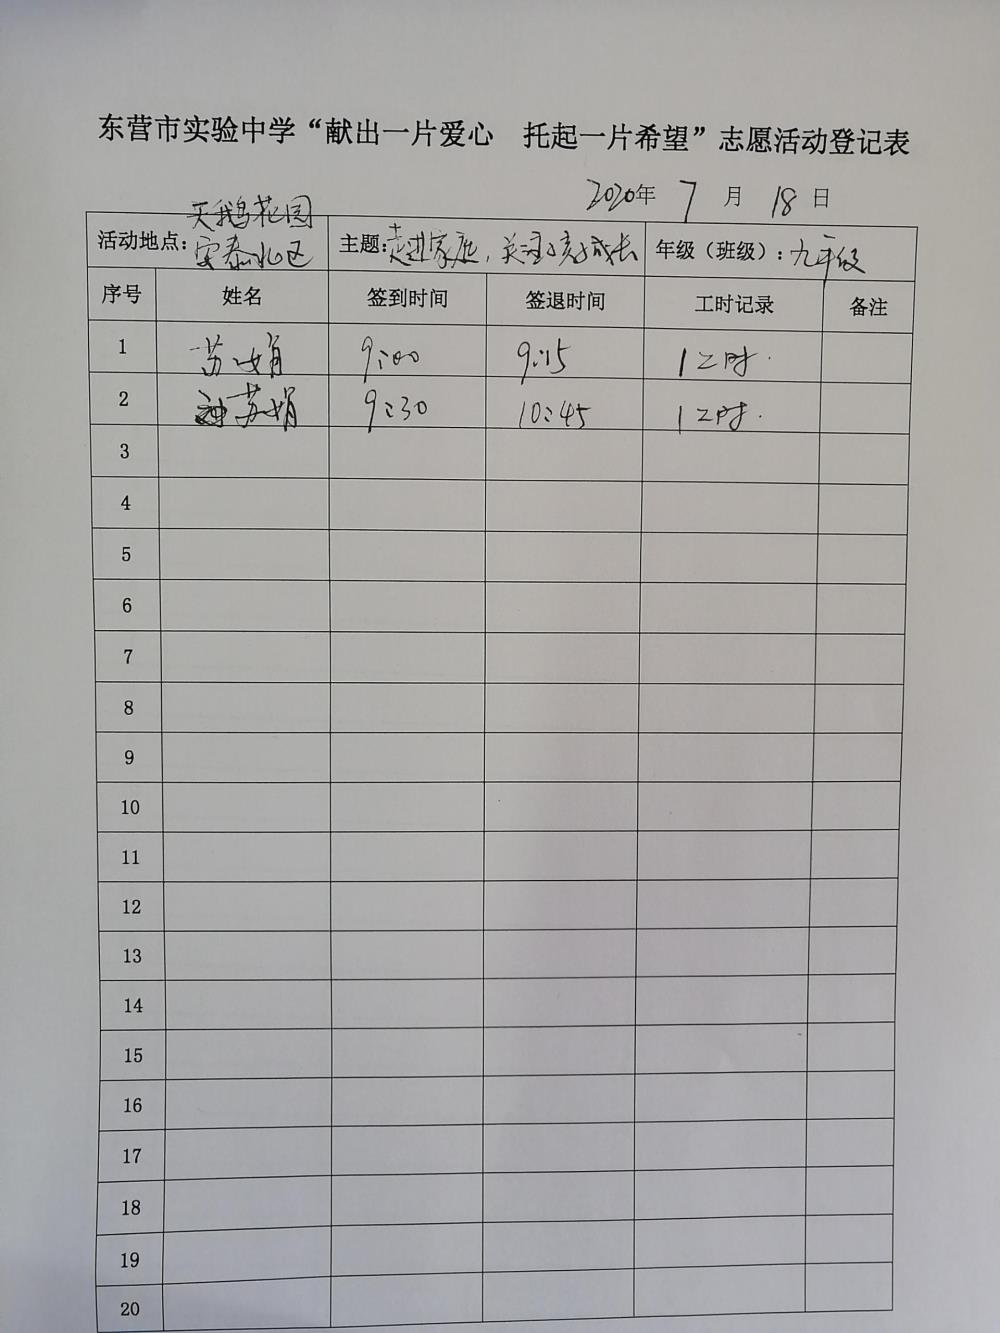 东营市实验中学“献出一片爱心 托起一片希望”志愿活动登记表
2020年 7 月 18 日
活动地点：天鹅花园 安泰北区 主题：走进家庭，关注孩子成长 年级（班级）：九年级
序号 姓名 签到时间 签退时间 工时记录 备注
1 苏娟 9:00 9:15 1工时.
2 苏娟 9:30 10:45 1工时.
3
4
5
6
7
8
9
10
11
12
13
14
15
16
17
18
19
20